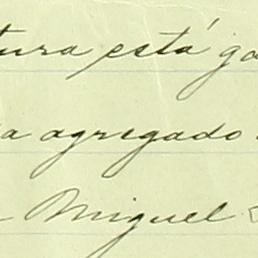 tura está ga
a agregado
Miguel